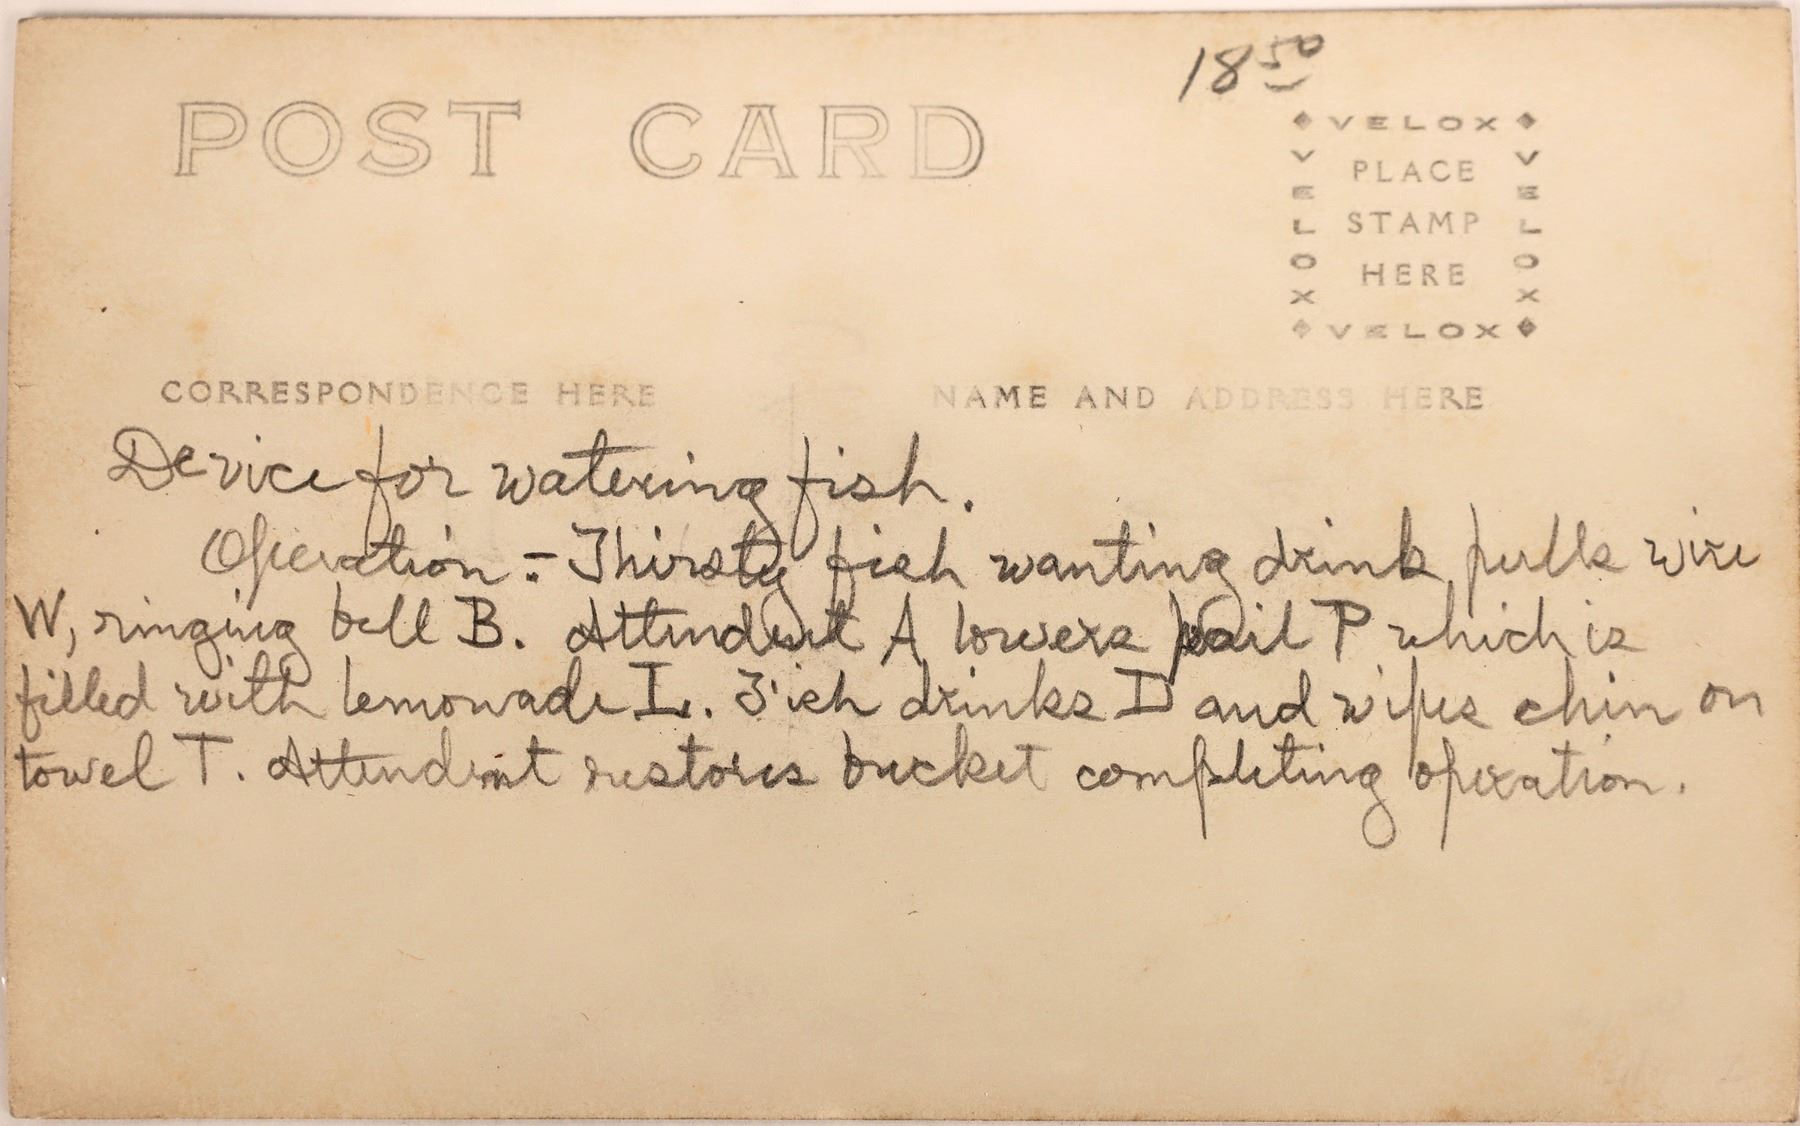 18 50
POST CARD
VELOX
VELOX
PLACE
STAMP
HERE
VELOX
VELOX
CORRESPONDENCE HERE
NAME AND ADDRESS HERE
Device for watering fish.
Operation:- Thirsty fish wanting drink pulls wire
W, ringing bell B. Attendent A lowers pail P which is
filled with lemonade L. Fish drinks D and wipes chin on
towel T. Attendent restores bucket completing operation.